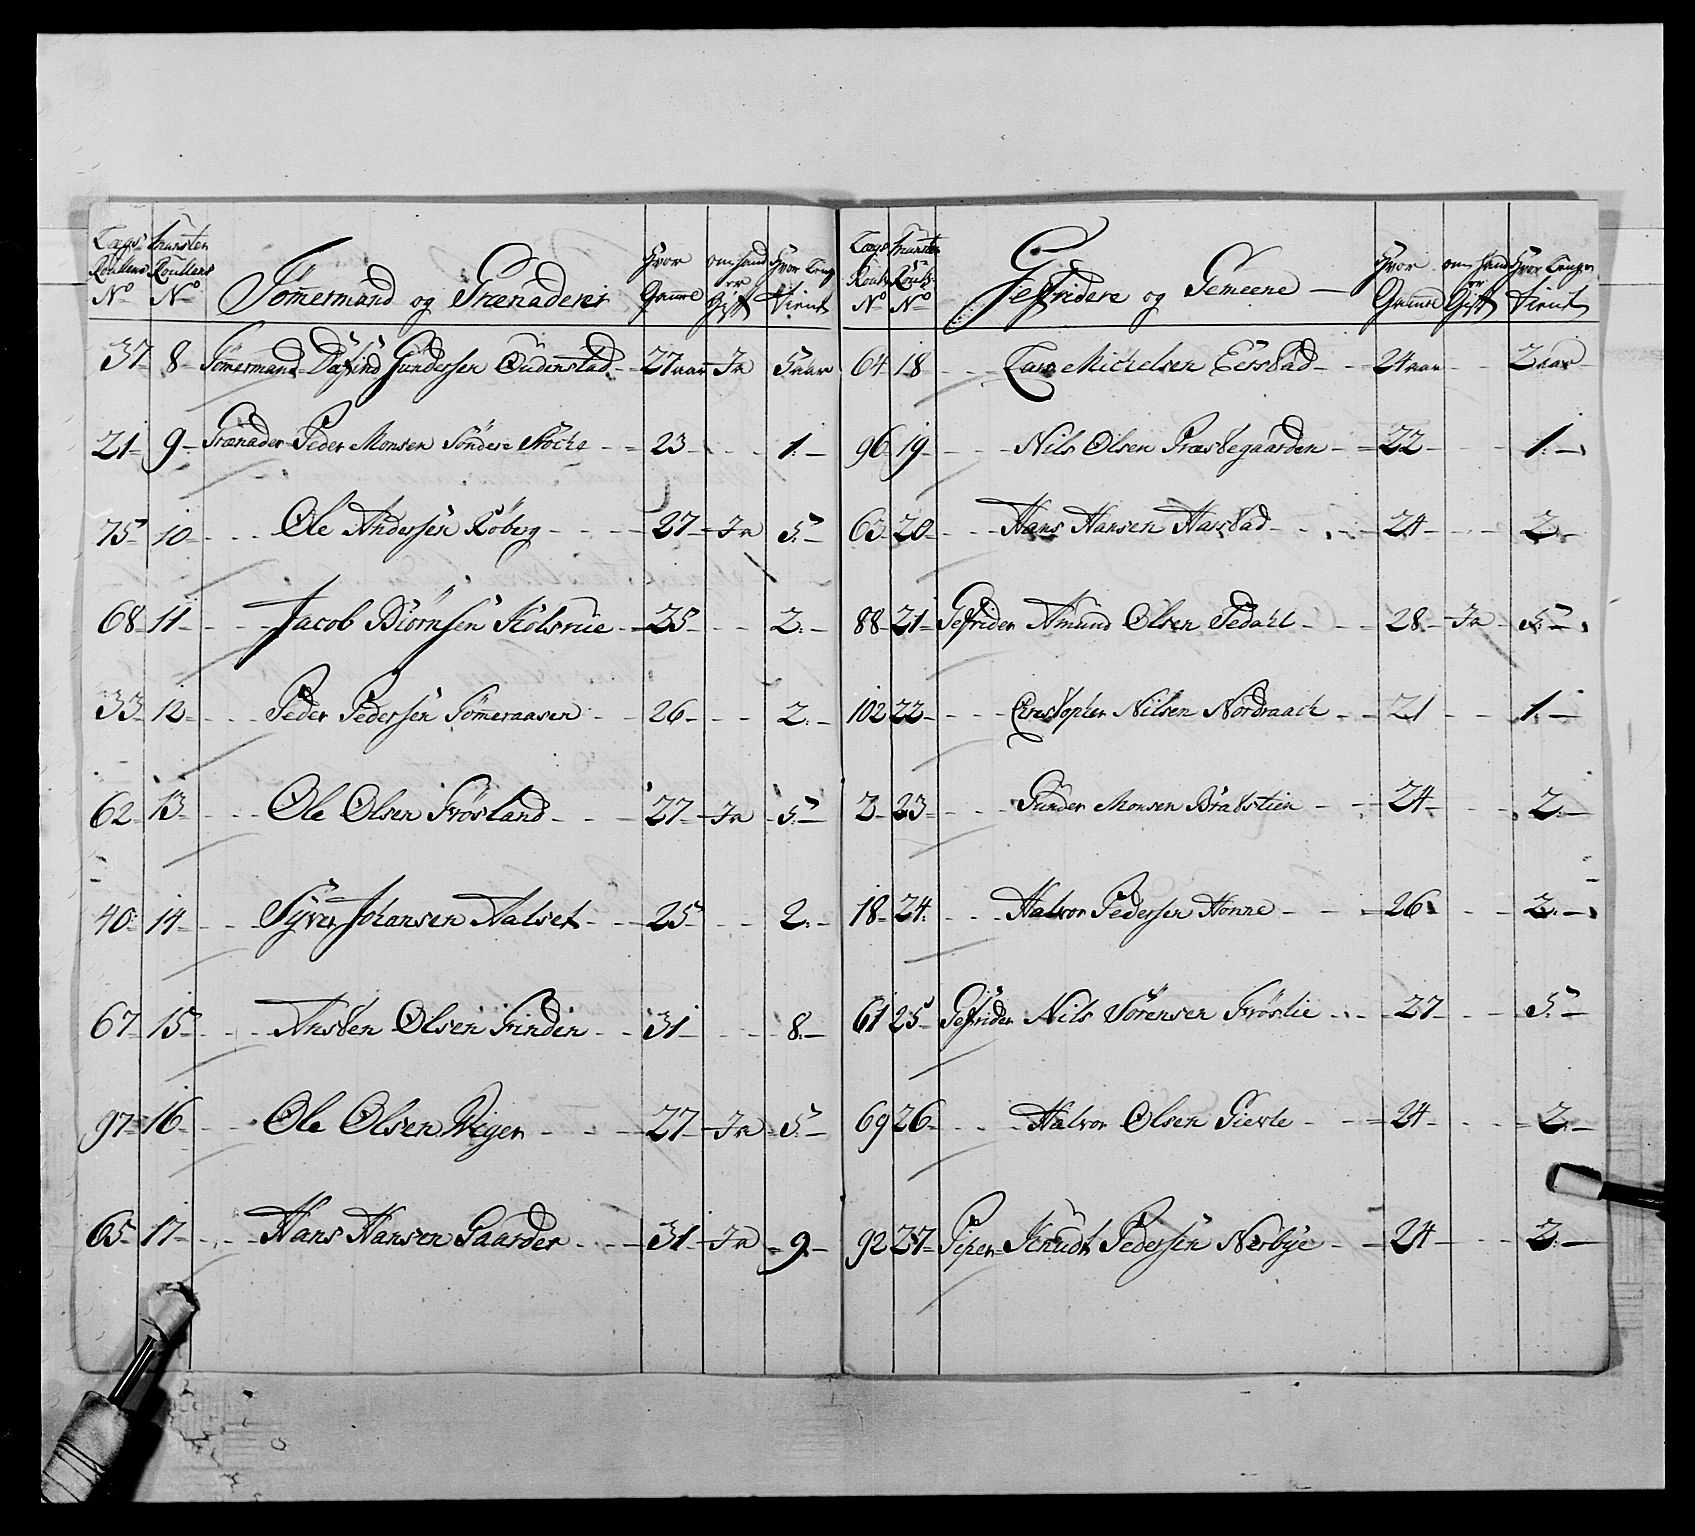 Lægs Roullens No | Munster Roullens No | Tömermand og Grænaderer | Hvor Gamle | om hand er Gift | Hvor Lenge tient
37 8 Tömermand Dafind Gundersen Oudenstad 27 aar Ja 5 aar
21 9 Grænader Peder Monsen Söndere 23 1
75 10 Ole Andersen Röberg 27 Ja 5
68 11 Jacob Biörnsen Kolsrue 25 2
33 12 Peder Pedersen Tömeraasen 26 2
62 13 Ole Olsen Frösland 27 Ja 5
40 14 Syver Johansen Aalset 25 2
67 15 Ansten Olsen Finden 31 8
97 16 Ole Olsen Wigen 27 Ja 5
65 17 Hans Hansen Gaarder 31 Ja 9
Lægs Roulls No | Munster Roulls No | Gefridere og Gemeene | Hvor Gamle | om hand er Gift | Hvor Lenge tient
64 18 Lars Michelsen 24 aar 2 aar
96 19 Nils Olsen Præstegaarden 22 1
63 20 Hans Hansen 24 2
88 21 Gefrider Amund Olsen Sedahl 28 Ja 5
102 22 Christopher Nilsen Nordraack 21 1
2 23 Gunder Monsen 24 2
18 24 Halvor Pedersen Honne 26 2
61 25 Gefrider Nils Sörensen Fröslie 27 5
69 26 Halvor Olsen Gievle 24 2
92 27 Piper Knudt Pedersen Nerbye 24 2